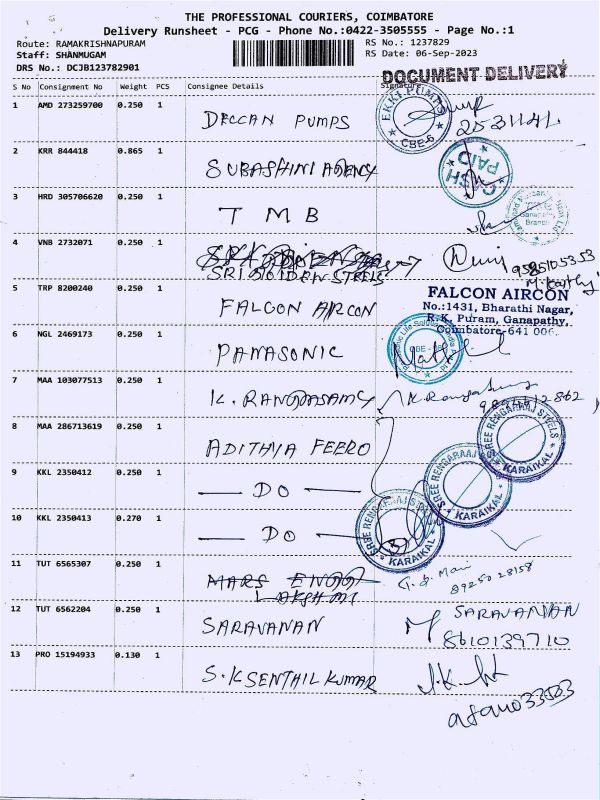 THE PROFESSIONAL COURIERS, COIMBATORE
Delivery Runsheet - PCG - Phone No.:0422-3505555 - Page No.:1
Route: RAMAKRISHNAPURAM
Staff: SHANMUGAM
DRS No.: DCJB123782901
RS No.: 1237829
RS Date: 06-Sep-2023
DOCUMENT DELIVERY
S No Consignment No Weight PCS Consignee Details Signature
1 AMD 273259700 0.250 1 DECCAN PUMPS
EKKI PUMPS CBE-6
2531141
2 KRR 844418 0.865 1 SUBASHINI AGENCY
CASH PAID
3 HRD 305706620 0.250 1 T M B
Ganapathy Branch
4 VNB 2732071 0.250 1
SRI GOLDEN STEELS
9585105353
5 TRP 8200240 0.250 1 FALCON AIRCON
FALCON AIRCON
No.:1431, Bharathi Nagar,
R.K. Puram, Ganapathy,
Coimbatore-641 006.
6 NGL 2469173 0.250 1 PANASONIC
7 MAA 103077513 0.250 1 K. RANGASAMY
K Rangasamy
8 MAA 286713619 0.250 1 ADITHYA FEERO
SHREE RENGARAAJ STEELS KARAIKAL
9 KKL 2350412 0.250 1 — DO —
SHREE RENGARAAJ STEELS KARAIKAL
10 KKL 2350413 0.270 1 — DO —
SHREE RENGARAAJ STEELS KARAIKAL
11 TUT 6565307 0.250 1 MARS ENGG
LAKSHMI
8925028158
12 TUT 6562204 0.250 1 SARAVANAN
SARAVANAN
8610139710
13 PRO 15194933 0.130 1 S.K SENTHIL KUMAR